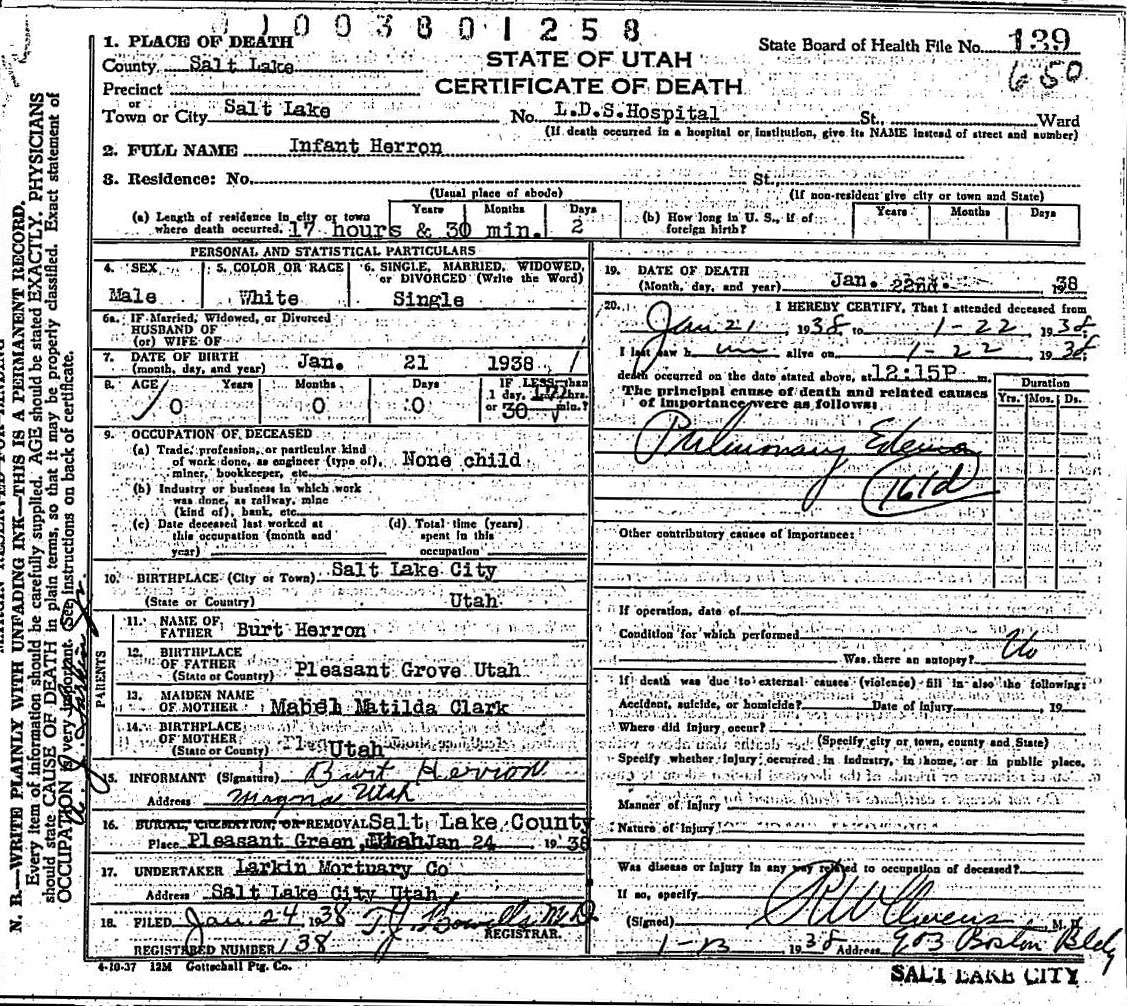 1003801258
1. PLACE OF DEATH
County Salt Lake
Precinct
or
Town or City Salt Lake
STATE OF UTAH
CERTIFICATE OF DEATH
State Board of Health File No. 139
650
No. L.D.S. Hospital St., Ward
(If death occurred in a hospital or institution, give its NAME instead of street and number)
2. FULL NAME Infant Herron
3. Residence: No. St.,
(Usual place of abode) (If non-resident give city or town and State)
(a) Length of residence in city or town where death occurred. 17 hours & 30 min. Years Months Days 2
(b) How long in U. S., if of foreign birth? Years Months Days
PERSONAL AND STATISTICAL PARTICULARS
4. SEX Male
5. COLOR OR RACE White
6. SINGLE, MARRIED, WIDOWED, or DIVORCED (Write the Word) Single
6a. IF Married, Widowed, or Divorced
HUSBAND OF
(or) WIFE OF
7. DATE OF BIRTH (month, day, and year) Jan. 21 1938
8. AGE Years 0 Months 0 Days 0 IF LESS than 1 day, 17 hrs. or 30 min.?
9. OCCUPATION OF DECEASED
(a) Trade, profession, or particular kind of work done, as engineer (type of), miner, bookkeeper, etc. None child
(b) Industry or business in which work was done, as railway, mine (kind of), bank, etc.
(c) Date deceased last worked at this occupation (month and year)
(d) Total time (years) spent in this occupation
10. BIRTHPLACE (City or Town) Salt Lake City
(State or Country) Utah
PARENTS
11. NAME OF FATHER Burt Herron
12. BIRTHPLACE OF FATHER (State or Country) Pleasant Grove Utah
13. MAIDEN NAME OF MOTHER Mabel Matilda Clark
14. BIRTHPLACE OF MOTHER (State or Country) Utah
15. INFORMANT (Signature) Burt Herron
Address Magna Utah
16. BURIAL, CREMATION, OR REMOVAL Salt Lake County
Place Pleasant Green, Utah Jan 24 1938
17. UNDERTAKER Larkin Mortuary Co
Address Salt Lake City Utah
18. FILED Jan 24 1938
REGISTRAR.
REGISTERED NUMBER 138
4-10-37 12M Gottschall Ptg. Co.
19. DATE OF DEATH (Month, day, and year) Jan. 22nd. 1938
20. I HEREBY CERTIFY, That I attended deceased from
Jan 21, 1938 to 1-22 1938;
I last saw him alive on 1-22 1938;
death occurred on the date stated above, at 12:15P m.
The principal cause of death and related causes of importance were as follows:
Duration
Yrs. Mos. Ds.
Pulmonary Edema
161d
Other contributory causes of importance:
If operation, date of
Condition for which performed
Was there an autopsy? No
If death was due to external causes (violence) fill in also the following:
Accident, suicide, or homicide? Date of Injury, 19
Where did injury occur?
(Specify city or town, county and State)
Specify whether injury occurred in industry, in home, or in public place,
Manner of Injury
Nature of Injury
Was disease or injury in any way related to occupation of deceased?
If so, specify
(Signed) M. D.
1938 Address 903 Boston Bldg
SALT LAKE CITY
N. B.—WRITE PLAINLY WITH UNFADING INK—THIS IS A PERMANENT RECORD.
Every item of information should be carefully supplied. AGE should be stated EXACTLY. PHYSICIANS
should state CAUSE OF DEATH in plain terms, so that it may be properly classified. Exact statement of
OCCUPATION is very important. See instructions on back of certificate.